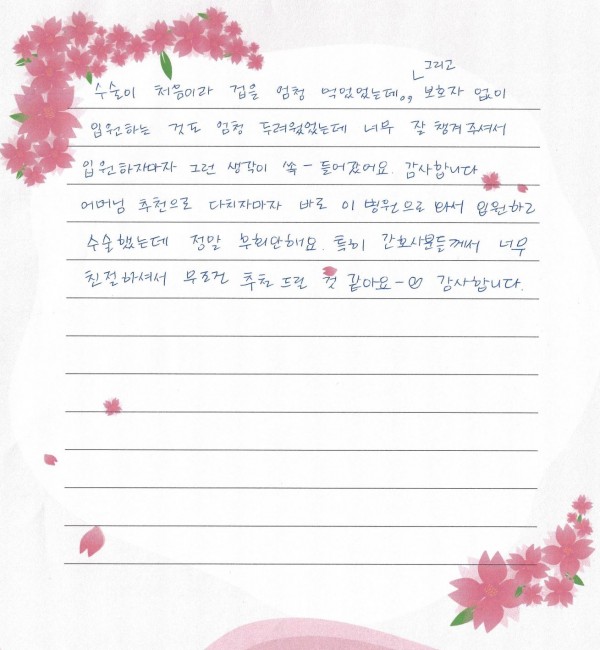 그리고
수술이 처음이라 겁을 엄청 먹었었는데,, 보호자 없이
입원하는 것도 엄청 두려웠었는데 너무 잘 챙겨주셔서
입원하자마자 그런 생각이 쏙 - 들어갔어요. 감사합니다
어머님 추천으로 다치자마자 바로 이 병원으로 와서 입원하고
수술했는데 정말 무회단해요. 특히 간호사분들께서 너무
친절하셔서 무조건 추천드린 것 같아요~♡ 감사합니다.